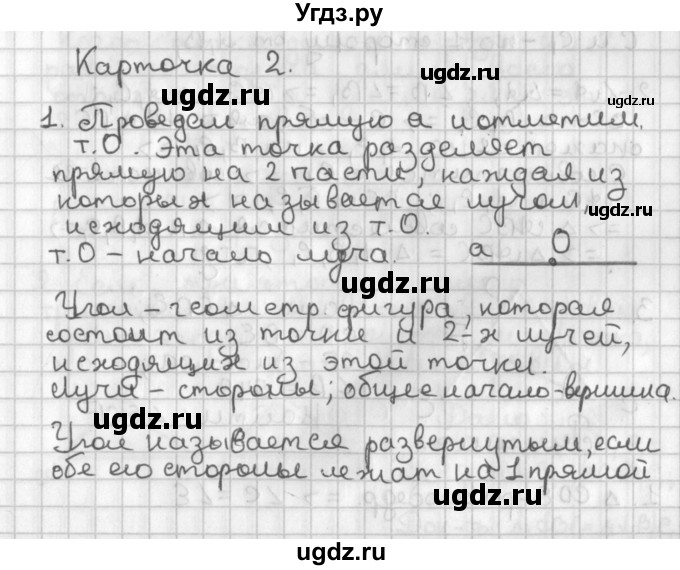 Угдз.ру
Карточка 2.
ugdz.ru
ugdz.ru
1. Проведем прямую а и отметим
т.О. Эта точка разделяет
прямую на 2 части, каждая из
которых называется лучом,
исходящим из т.О.
т.О - начало луча. а О
ugdz.ru
ugdz.ru
ugdz.ru
Угол - геометр. фигура, которая
состоит из точки и 2-х лучей,
исходящих из этой точки.
Лучи - стороны; общее начало - вершина.
ugdz.ru
ugdz.ru
Угол называется развернутым, если
обе его стороны лежат на 1 прямой
ugdz.ru
ugdz.ru